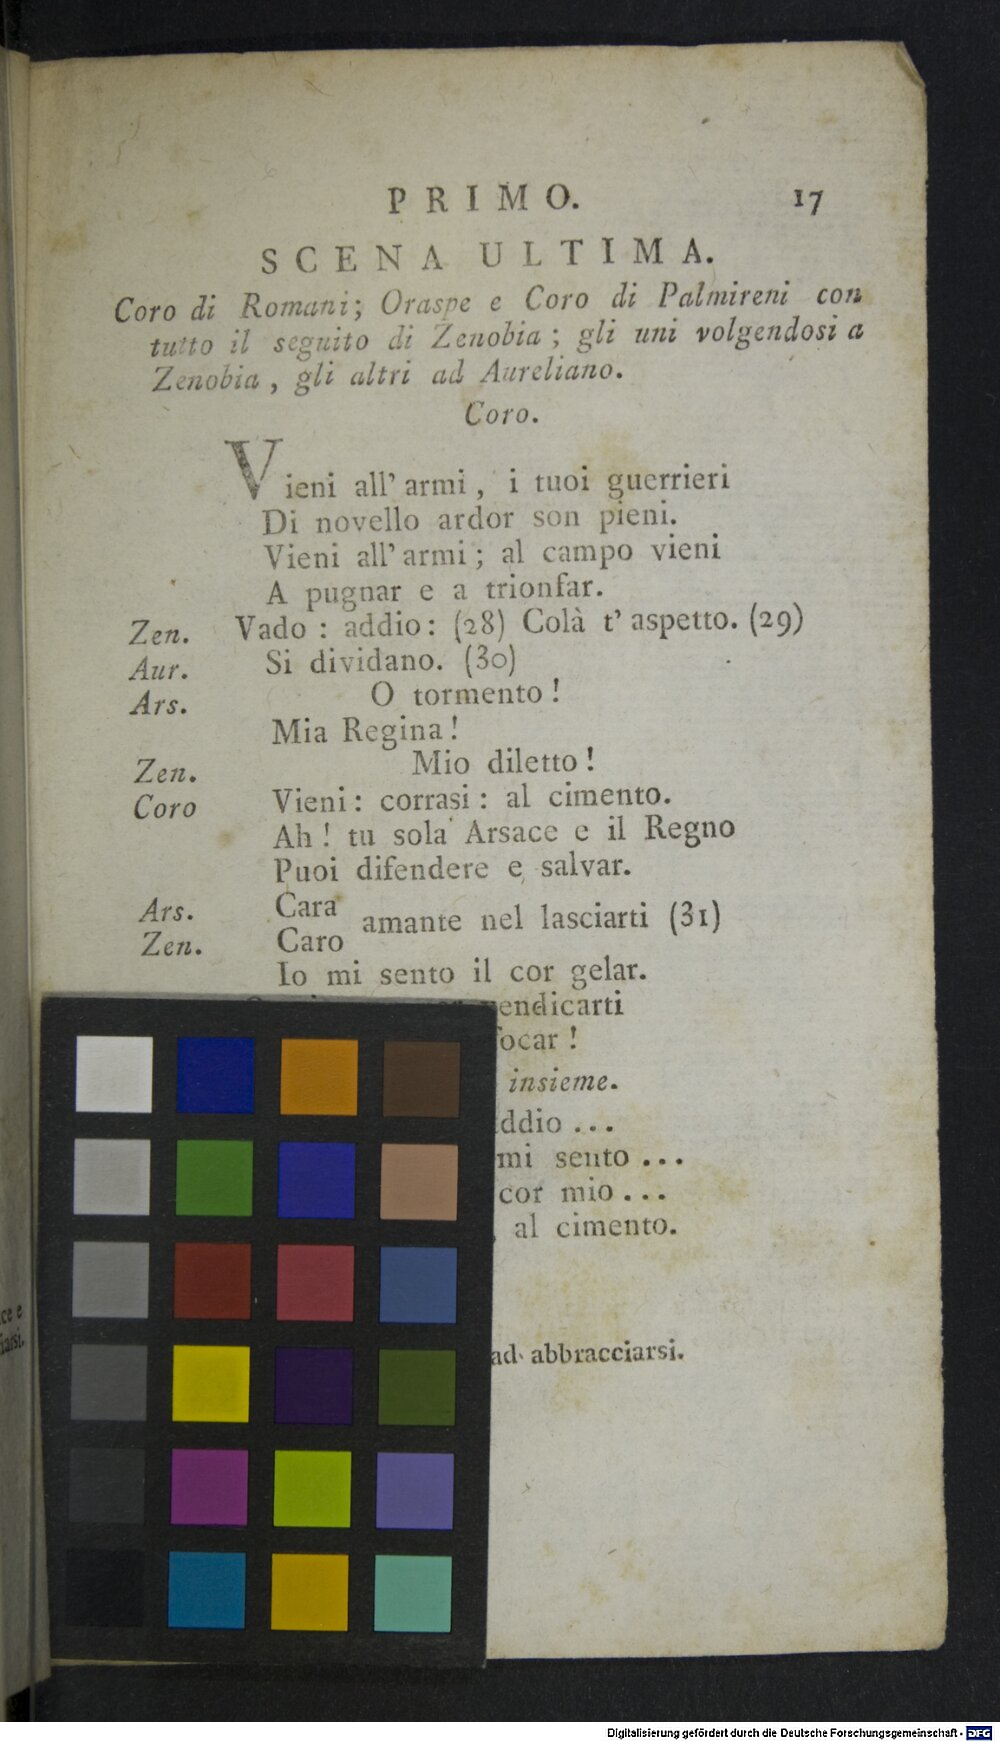 PRIMO. 17
SCENA ULTIMA.
Coro di Romani; Oraspe e Coro di Palmireni con
tutto il seguito di Zenobia; gli uni volgendosi a
Zenobia, gli altri ad Aureliano.
Coro.
Vieni all' armi, i tuoi guerrieri
Di novello ardor son pieni.
Vieni all' armi; al campo vieni
A pugnar e a trionfar.
Zen. Vado: addio: (28) Colà t' aspetto. (29)
Aur. Si dividano. (30)
Ars. O tormento!
Mia Regina!
Zen. Mio diletto!
Coro Vieni: corrasi: al cimento.
Ah! tu sola Arsace e il Regno
Puoi difendere e salvar.
Ars. Cara
amante nel lasciarti (31)
Zen. Caro
Io mi sento il cor gelar.
vendicarti
insieme.
mi sento ...
cor mio ...
al cimento.
ad abbracciarsi.
Digitalisierung gefördert durch die Deutsche Forschungsgemeinschaft - DFG